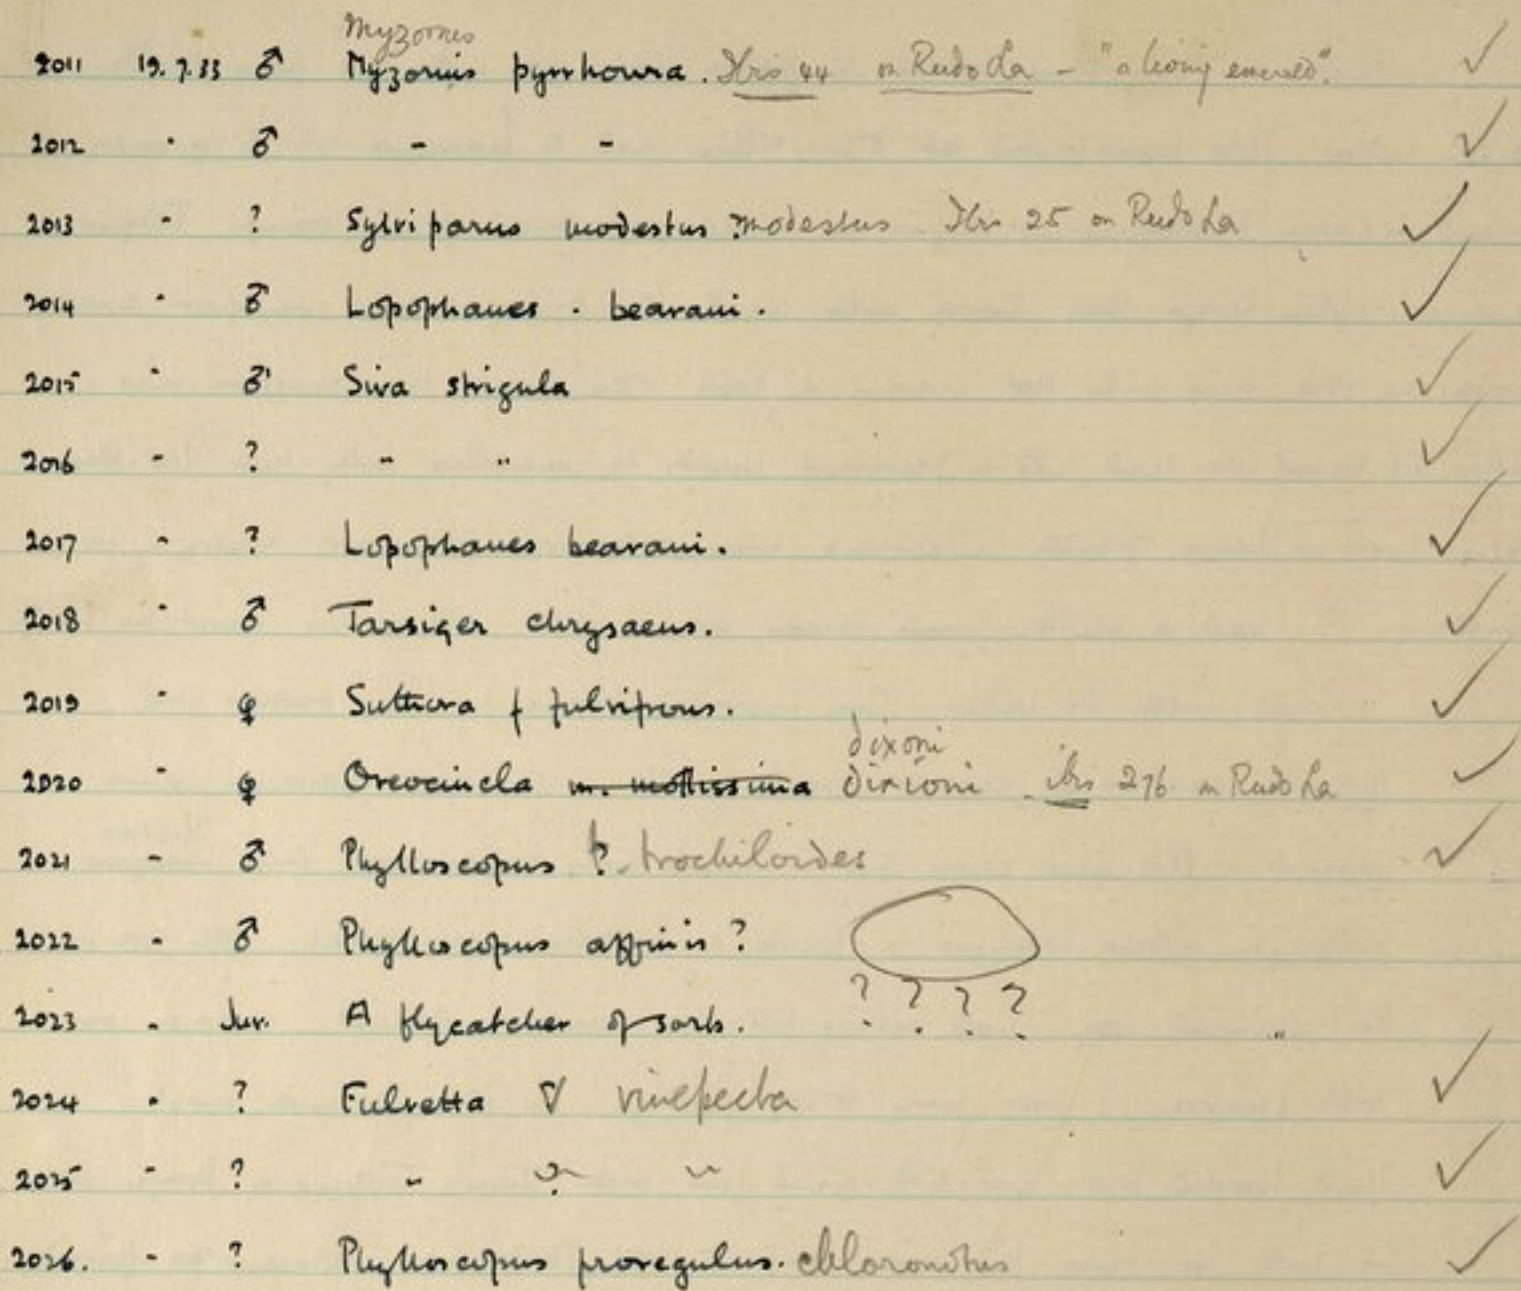 Myzornis
2011 19.7.33 ♂ Myzornis pyrrhoura. Ibis 44 on Rudo La - "a living emerald". ✓
2012 " ♂ - - ✓
2013 - ? Sylviparus modestus ? modestus Ibis 25 on Rudo La ✓
2014 " ♂ Lopophanes . beavani . ✓
2015 " ♂ Siva strigula ✓
2016 - ? - " ✓
2017 - ? Lopophanes beavani . ✓
2018 " ♂ Tarsiger chrysaeus. ✓
2019 " ♀ Suthora f fulvifrons. ✓
dixoni
2020 " ♀ Oreocincla m. mollissima dixioni ibis 276 on Rudo La ✓
2021 - ♂ Phylloscopus ? trochiloides ✓
2022 - ♂ Phylloscopus affinis ?
2023 - Juv. A flycatcher of sorts. ? ? ? ?
2024 " ? Fulvetta V vinepecta ✓
2025 - ? " ? " ✓
2026. - ? Phylloscopus proregulus. chloronotus ✓